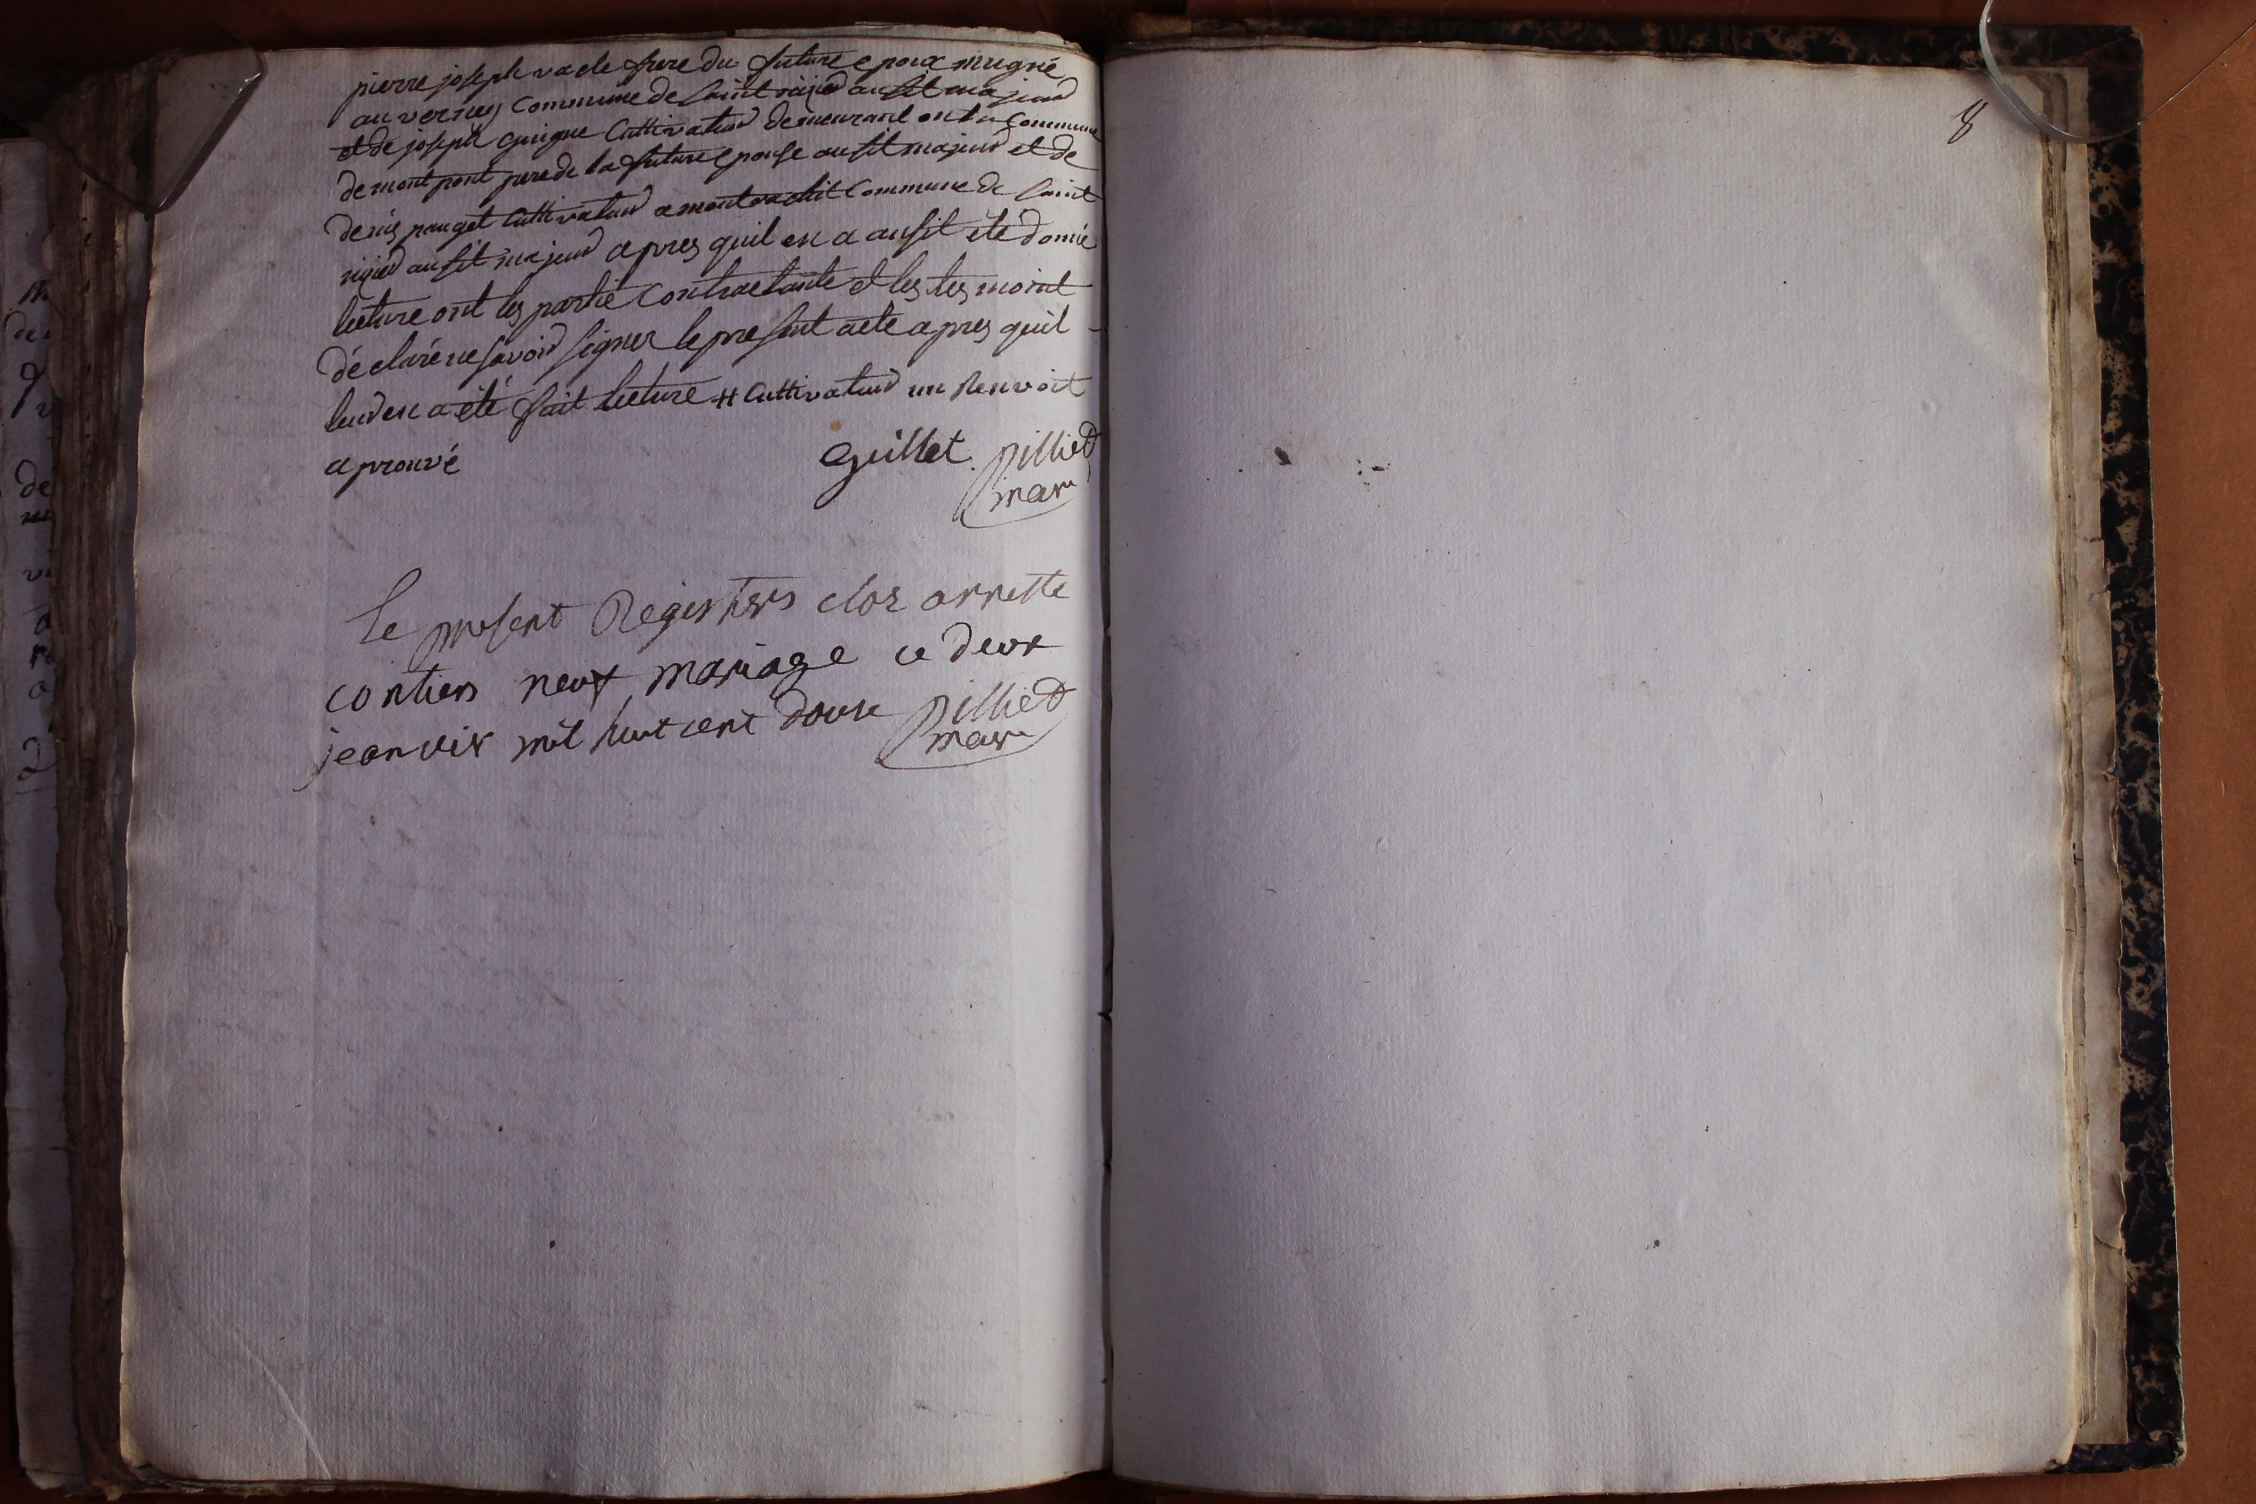 pierre joseph vacle frere du future epoux
au vernus Commune de Saint ausit majeur
et de joseph guigue Cultivateur demeurant ont la Commune
de mont pont pere de la future epouse ausit majeur et de
denis pauget Cultivateur a Commune de Saint
ausit majeur apres quil en a ausit été donné
lecture ont les partie Contractante et les tesmoint
déclaré ne savoir signer le present acte apres quil
leur en a été fait lecture # Cultivateur un Renvoit
aprouvé
guillet pilliet
mare
8
le present Registers clos arrette
contien neuf mariage ce deux
jeanvir mil huit cent douse pilliet
mare